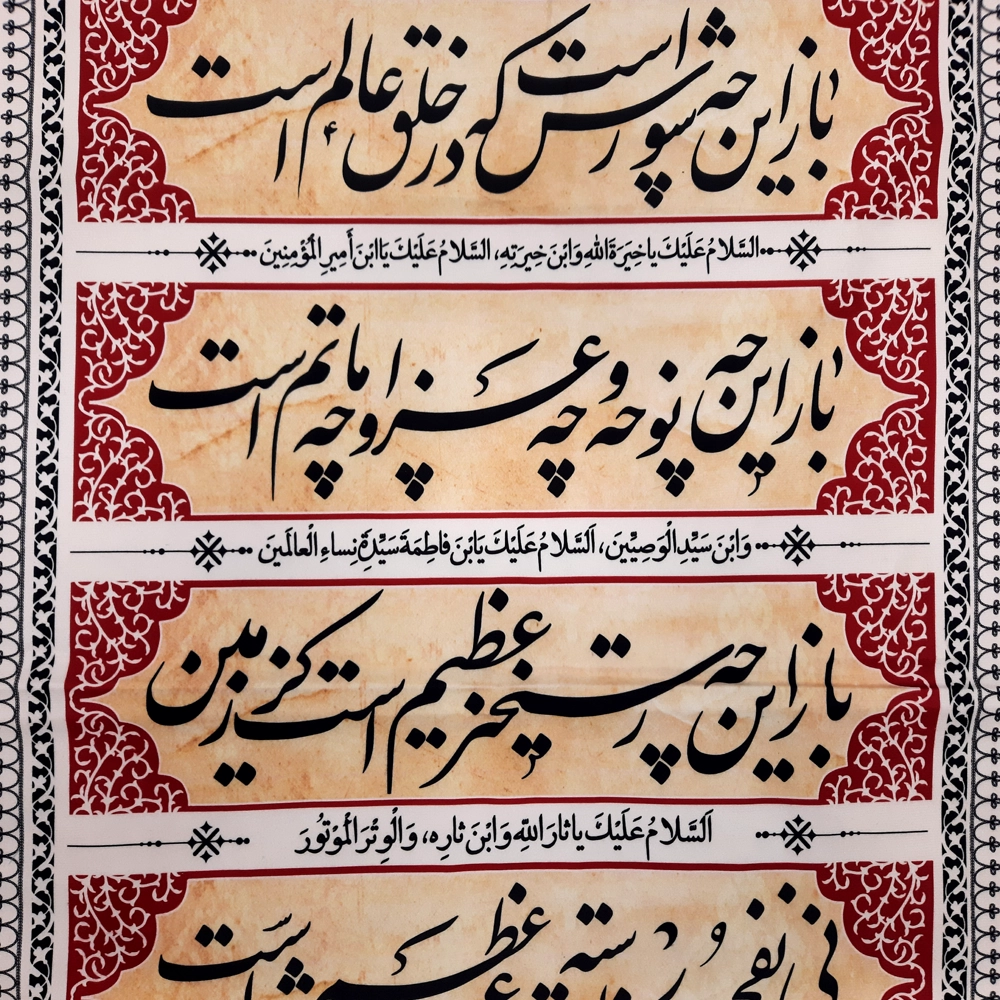 باز این چه شورش است که در خلق عالم است
السَّلامُ عَلَيْكَ يا خِيَرَةَ اللهِ وَابْنَ خِيَرَتِهِ، السَّلامُ عَلَيْكَ يَاابْنَ أَمِيرِ الْمُؤْمِنِينَ
باز این چه نوحه و چه عزا و چه ماتم است
وَابْنَ سَيِّدِ الْوَصِيِّينَ، اَلسَّلامُ عَلَيْكَ يَابْنَ فاطِمَةَ سَيِّدَةِ نِساءِ الْعالَمَينَ
باز این چه رستخیز عظیم است کز زمین
اَلسَّلامُ عَلَيْكَ يا ثارَ اللّٰهِ وَابْنَ ثارِهِ، وَالْوِتْرَ الْمَوْتُورَ
بی نفخ صور خاسته عرش اعظم است